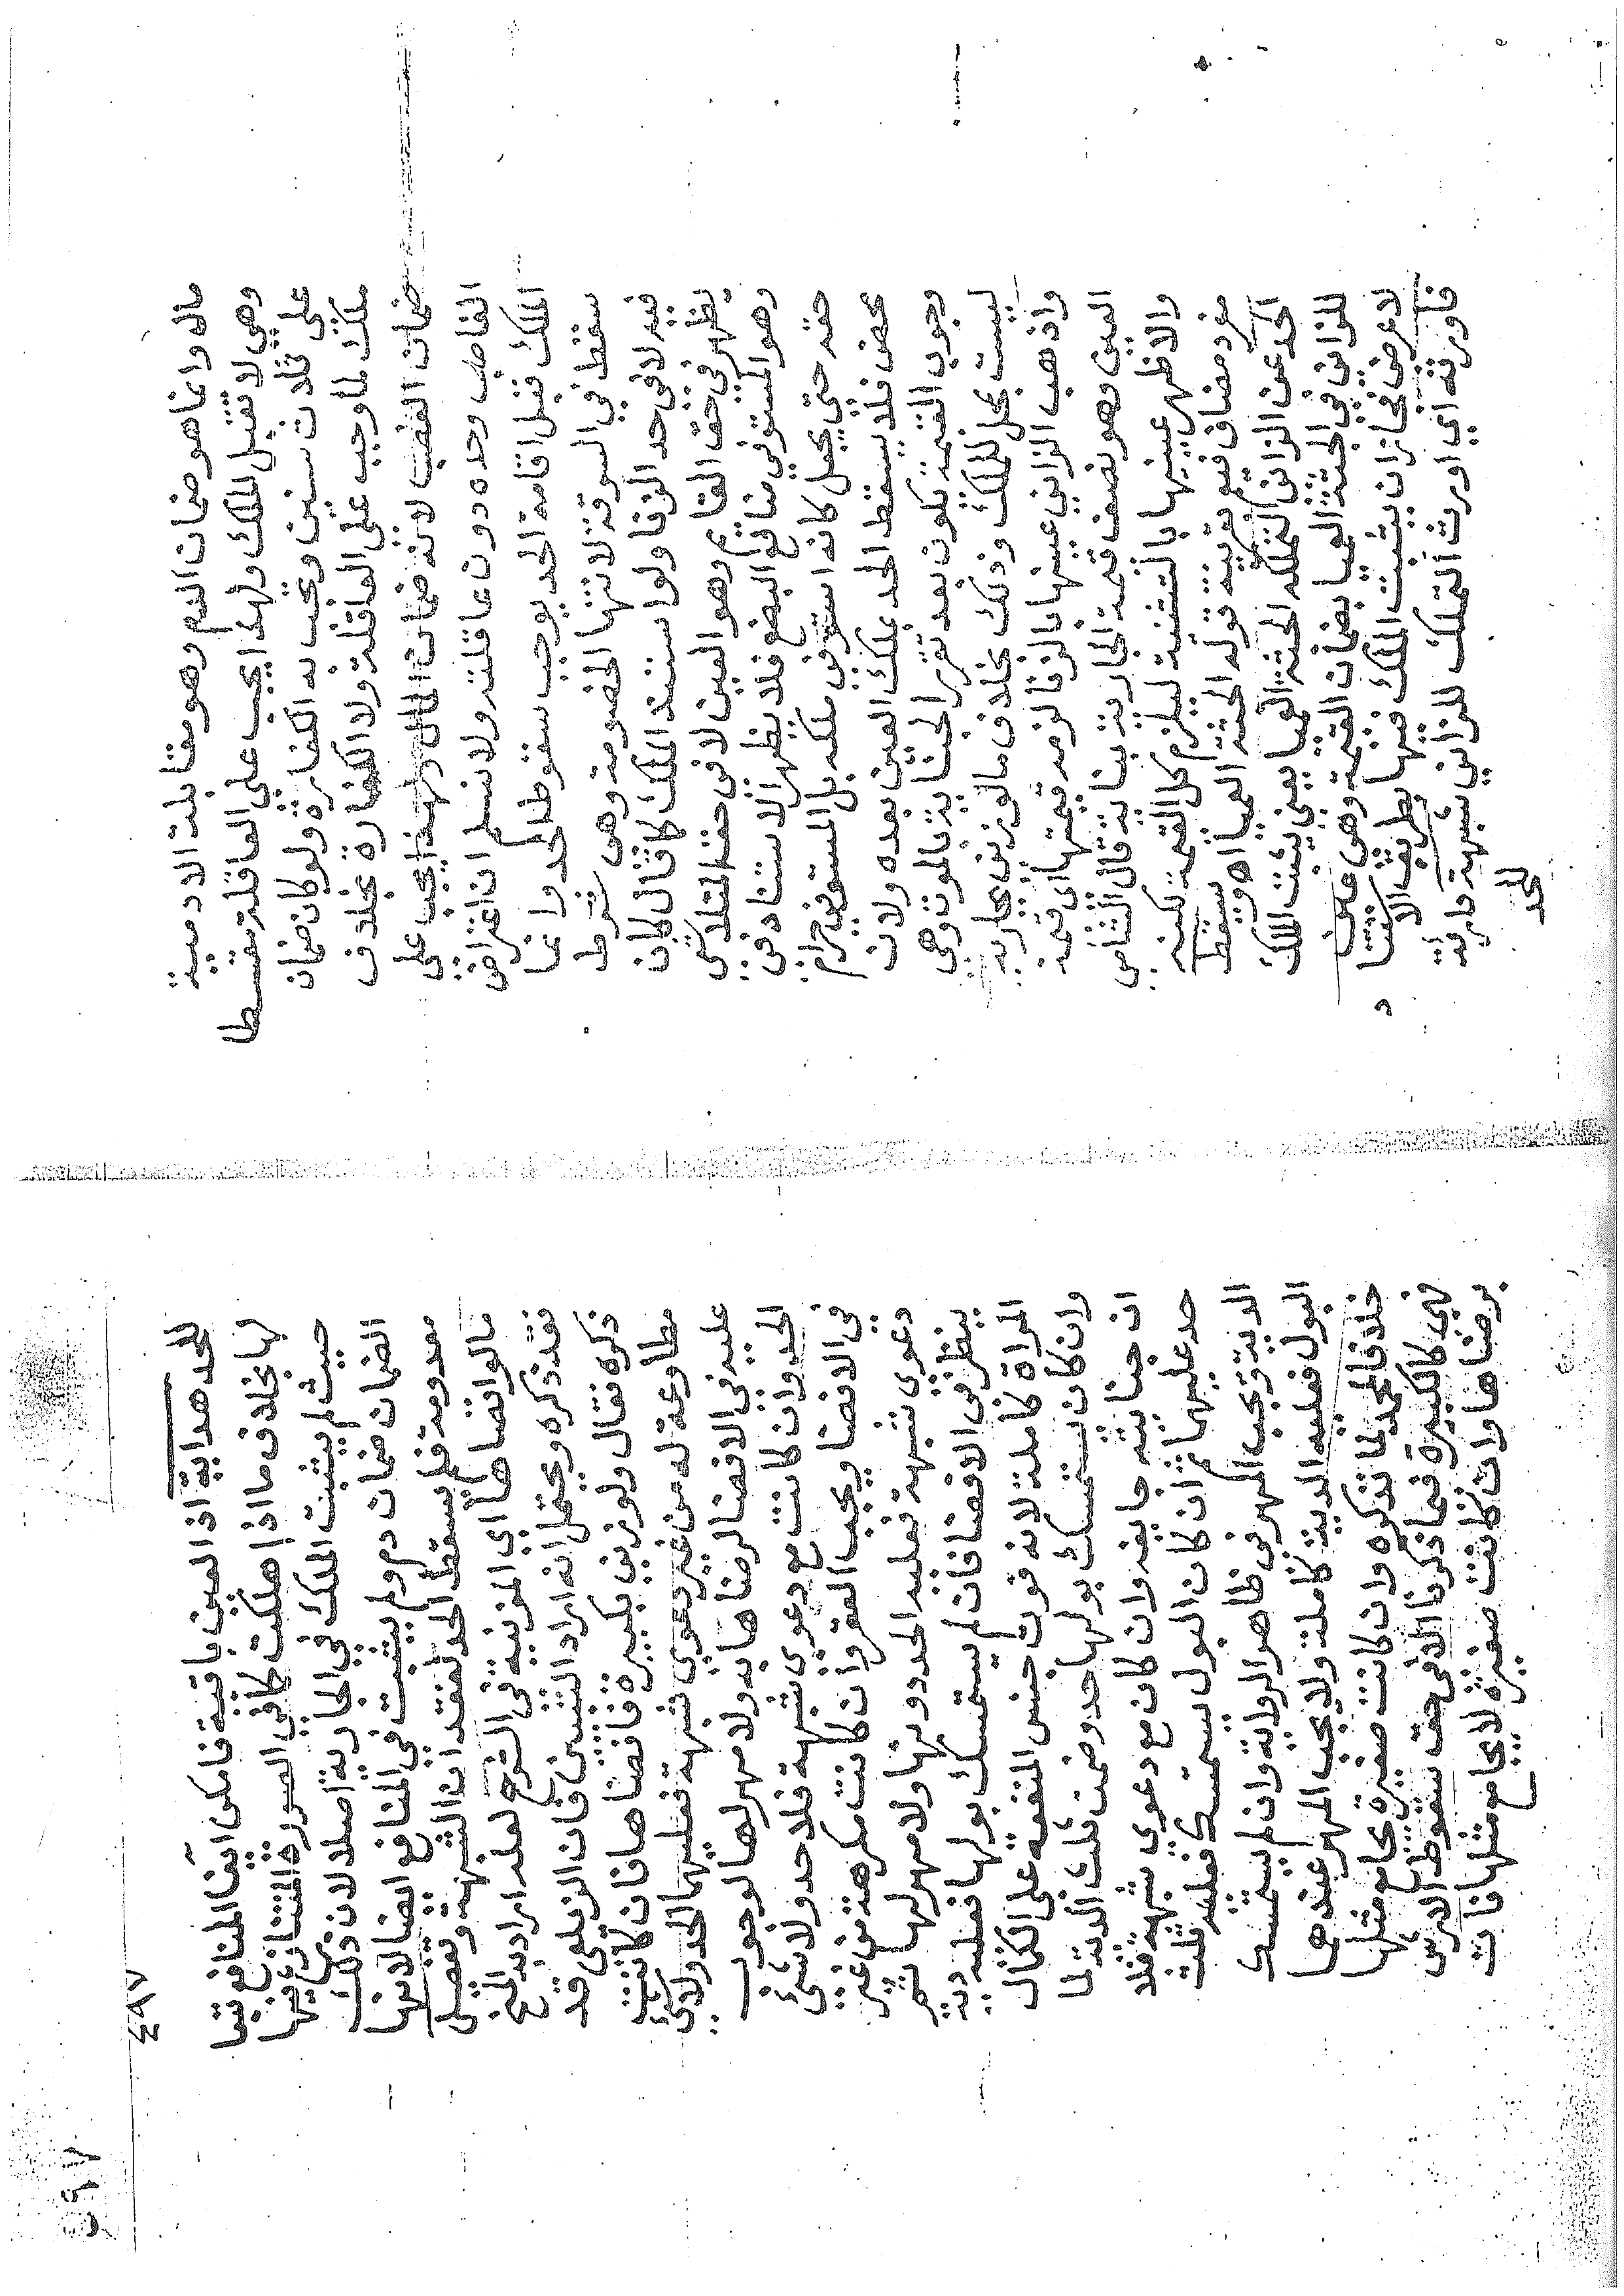 ماله وانما هو ضمان الدم وهو مقابلة الادمية
وهي لا تقبل الملك ولهذا يجب علي العاقلة مقسطا
علي ثلاث سنين وتجب به الكفارة ولو كان ضمان
ملك لما وجب علي العاقلة ولا الكفارة بخلاف
ضمان الغصب لانه ضمان المال ولهذا يجب علي
الغاصب وحده دون عاقلته ولا نسلم ان اعتراض
الملك قبل اقامة الحد يوجب سقوط الحد وانما
سقط في السرقة لانتها الخصومة وهي شرط
فيه لا في حد الزنا ولو استند الملك كما قال لكان
يظهر في حق القائم وهو العين لا في حق المتلاشي
وهو المستوفي منافع البضع فلا يظهر الاستناد في
حقه حتي يجعل كانه استوفي ملكه بل المستوفي حرام
محض فلا يسقط الحد بملك العين بعده ولان
وجوب القيمة يكون بعد تقرر الجناية بالموت وهي
ليست بمحل للملك وذلك بخلاف ما لو زني بجارية
واذهب الزاني عينها بالزنا لزمه قيمتها اي قيمة
العين وهو نصف قيمة الجارية بنايه قال الشامي
والاظهر عينيها بالتثنية ليلزم كل القيمة لكنه
مفرد مضاف فيعم بقرينة قوله الجثة العميا اه وسقط
الحد عن الزاني لتملكه الجثة العميا يعني يثبت الملك
للزاني في الجثة العميا بضمان القيمة وهي عين
لا عرض فجاز ان يثبت الملك فيها بطريق الاستناد
فاورثه اي اورث التملك للزاني شبهة دارئة
للحد
٤٩٧
للحد هداية اذ العين باقية فامكن ايفا المنافع تبعا
لها بخلاف ما اذا هلكت كما في الصورة المتنازع فيها
حيث لم يثبت الملك في الجارية اصلا لان ذلك
الضمان ضمان دم ولم يثبت في المنافع ايضا لانها
معدومة فلم يسقط الحد لفقدان الشبهة وتفصيل
ما لو افضاها اي المزنية في الشرح لعله اراد به المنح
فقد ذكره ويحتمل انه اراد التبيين فان الزيلعي قد
ذكره فقال ولو زني بكبيرة فافضاها فان كانت
مطاوعة له من غير دعوي شبهة فعليهما الحد ولا شي
عليه في الافضا لرضاها به ولا مهر لها لوجوب
الحد وان كانت مع دعوي شبهة فلا حد ولا شي
في الافضا ويجب العقر وان كانت مكرهة من غير
دعوي شبهة فعليه الحد دونها ولا مهر لها ثم
ينظر في الافضا فان لم يستمسك بولها فعليه دية
المراة كاملة لانه فوت جنس المنفعة علي الكمال
وان كان يستمسك بولها حد وضمن ثلث الدية لما
ان جنايته جايفه وان كان مع دعوي شبهة فلا
حد عليهما ثم ان كان البول يستمسك فعليه ثلث
الدية ويجب المهر في ظاهر الرواية وان لم يستمسك
البول فعليه الدية كاملة ولا يجب المهر عندهما
خلافا لمحمد لما نذكره وان كانت صغيرة يجامع مثلها
فهي كالكبيرة فيما ذكرنا الا في حق سقوط الارش
برضاها وان كانت صغيرة لا يجامع مثلها فان